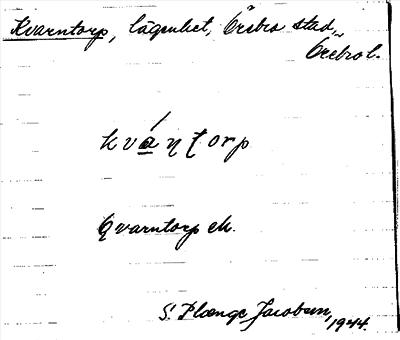 Kvarntorp, lägenhet, Örebro stad,
Örebro l.
kváṇṭorp
Qvarntorp ek.
S. Plænge Jacobson, 1944.